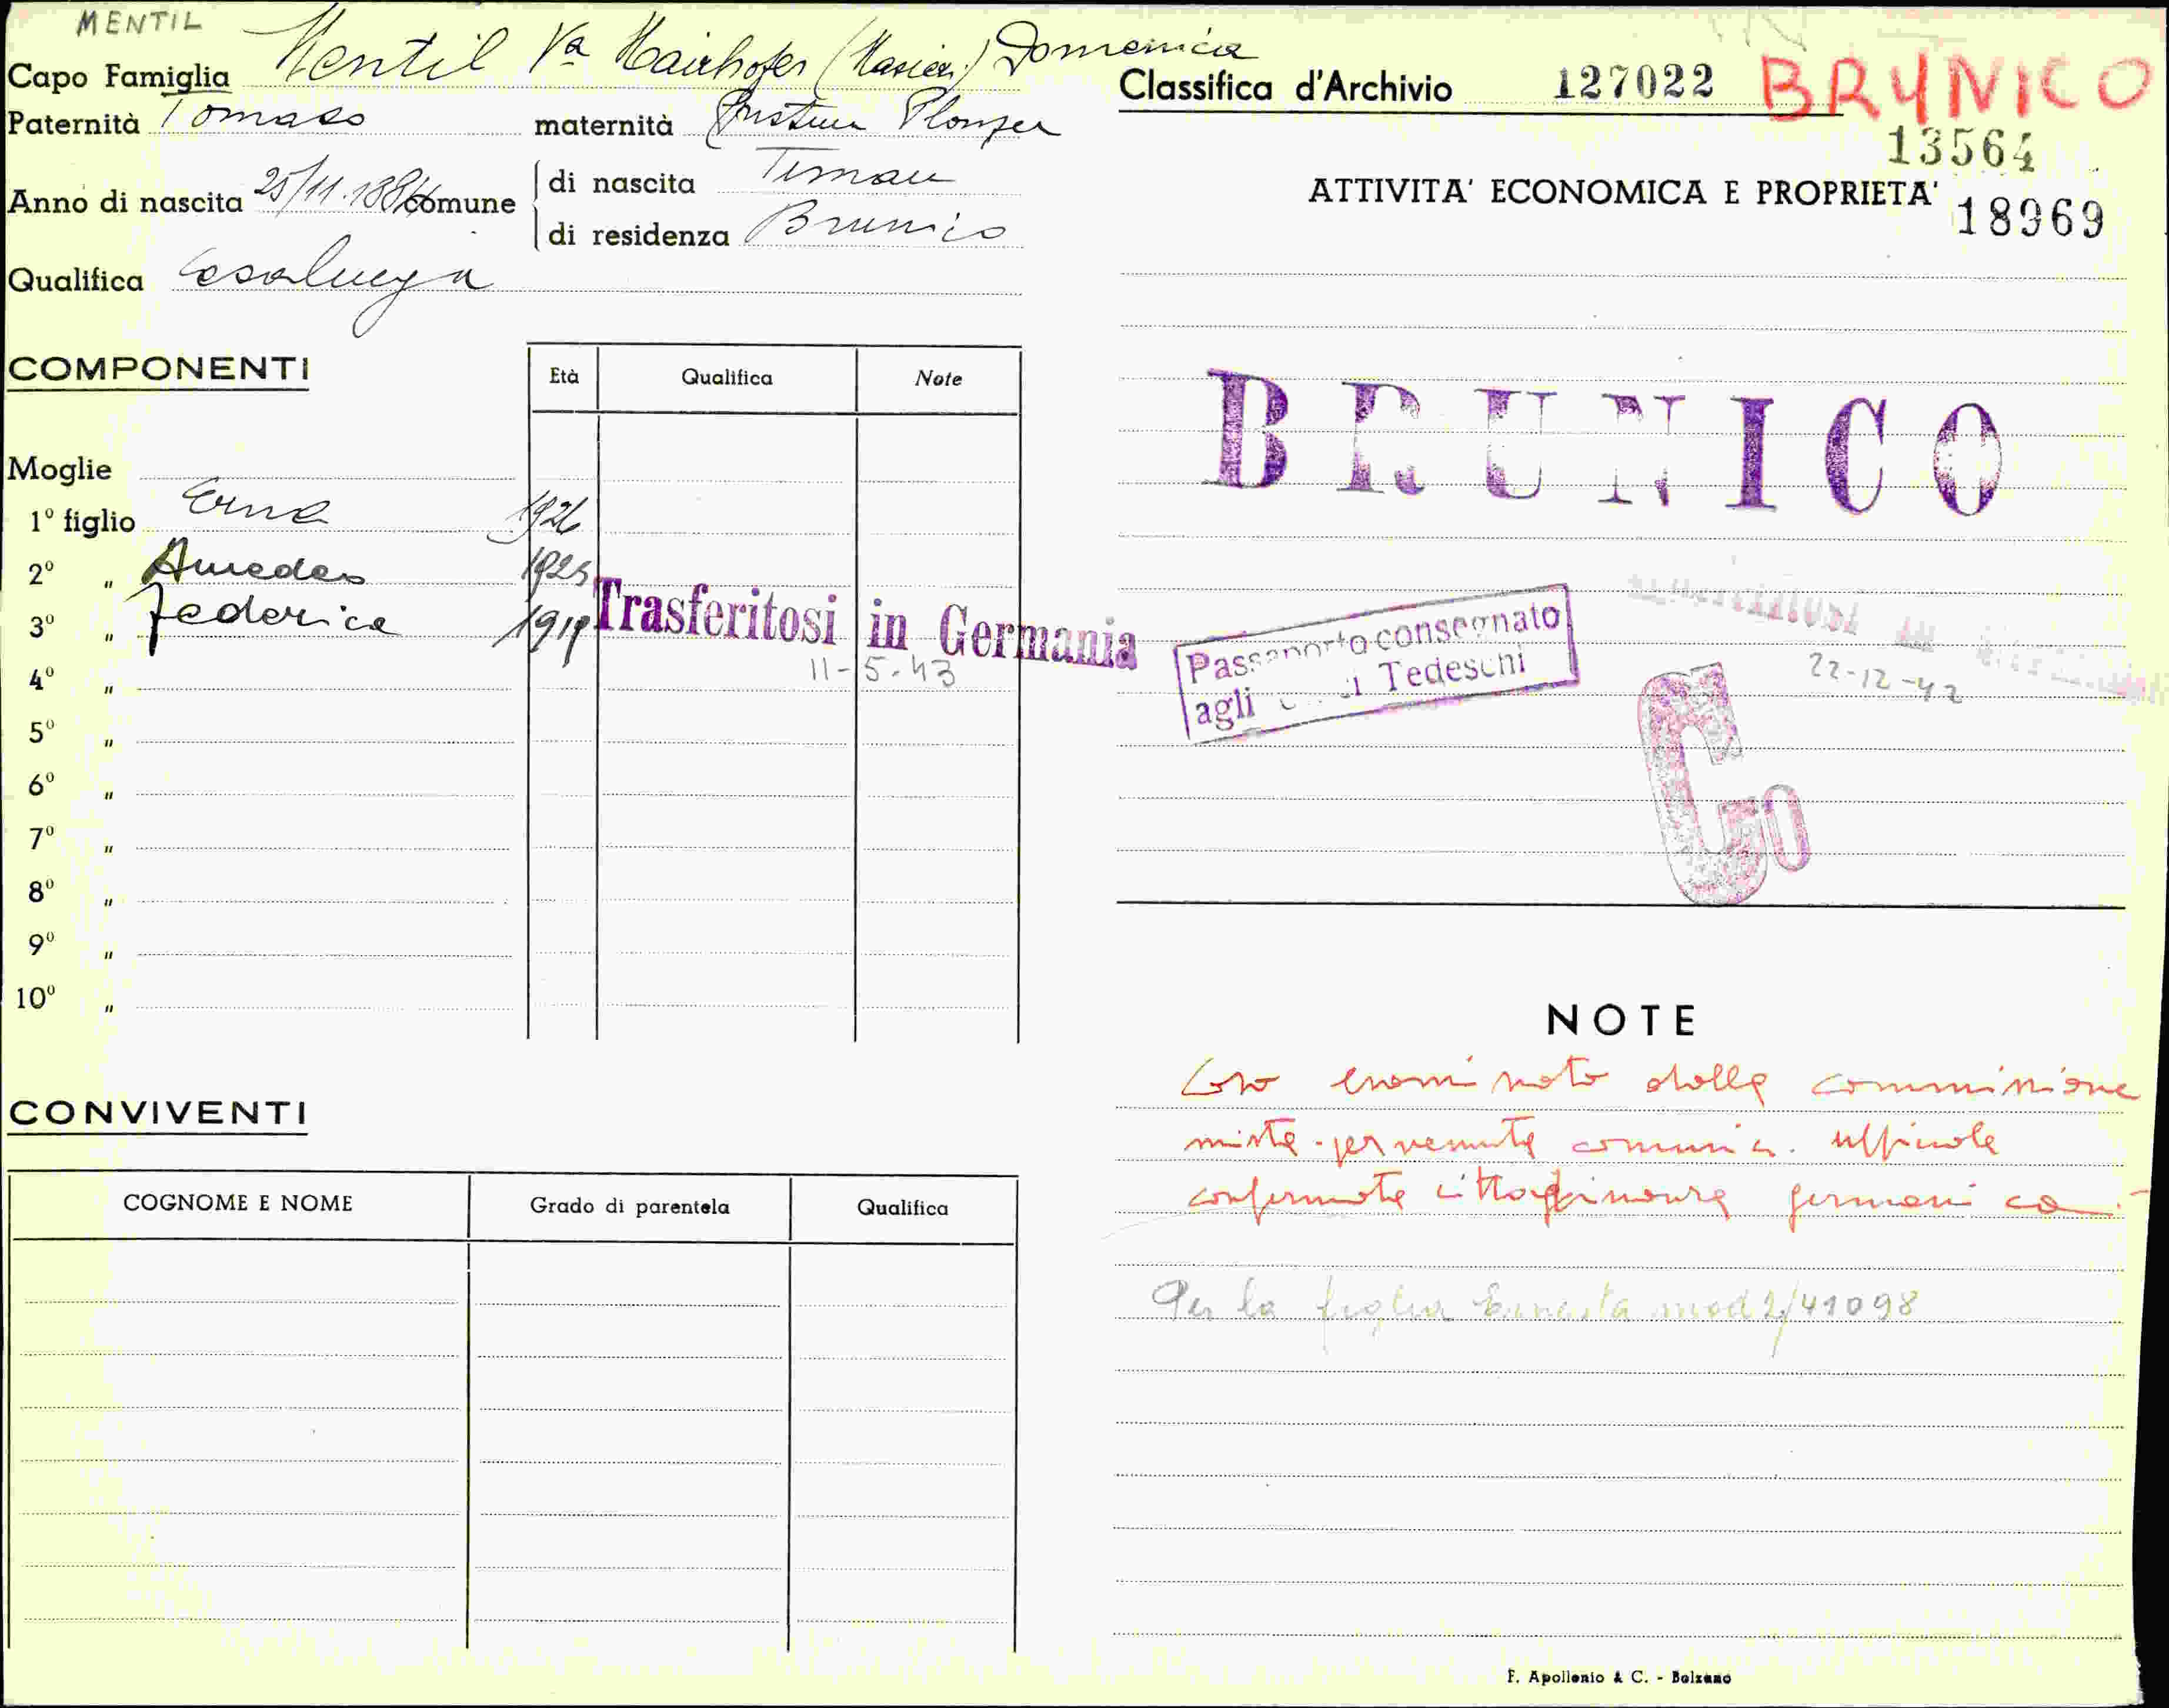 MENTIL
Capo Famiglia Mentil Va Mairhofer (Masieri) Domenica
Paternità Tomaso maternità Cristina Plonzer
Anno di nascita 25/11.1884 comune di nascita Timau
di residenza Brunico
Qualifica Casalinga
COMPONENTI Età Qualifica Note
Moglie
1º figlio Erna 1926
2º " Amedeo 1923
3º " Federica 1919 Trasferitosi in Germania
4º " 11-5-43
5º "
6º "
7º "
8º "
9º "
10º "
CONVIVENTI
COGNOME E NOME Grado di parentela Qualifica
Classifica d'Archivio 127022 BRUNICO
13564
ATTIVITA' ECONOMICA E PROPRIETA' 18969
BRUNICO
Passaporto consegnato
agli Tedeschi
22-12-42
Co
NOTE
Caso esaminato dalla commissione
mista - pervenuta comunic. ufficiale
confermata cittadinanza germanica.-
Per la figlia Ernesta mod 2/41098
F. Apollonio & C. - Bolzano